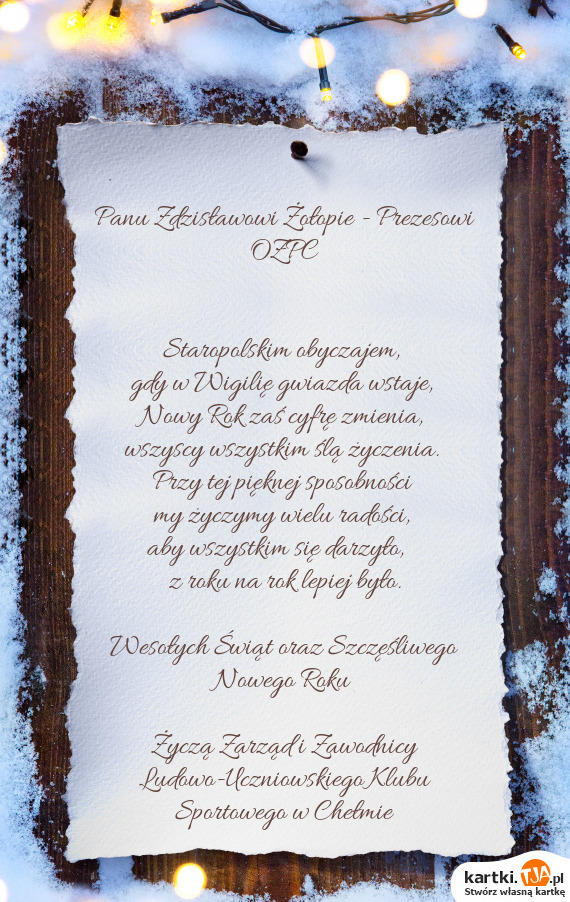 Panu Zdzisławowi Żołopie - Prezesowi
OZPC
Staropolskim obyczajem,
gdy w Wigilię gwiazda wstaje,
Nowy Rok zaś cyfrę zmienia,
wszyscy wszystkim ślą życzenia.
Przy tej pięknej sposobności
my życzymy wielu radości,
aby wszystkim się darzyło,
z roku na rok lepiej było.
Wesołych Świąt oraz Szczęśliwego
Nowego Roku
Życzą Zarząd i Zawodnicy
Ludowo-Uczniowskiego Klubu
Sportowego w Chełmie
kartki.TJA.pl
Stwórz własną kartkę